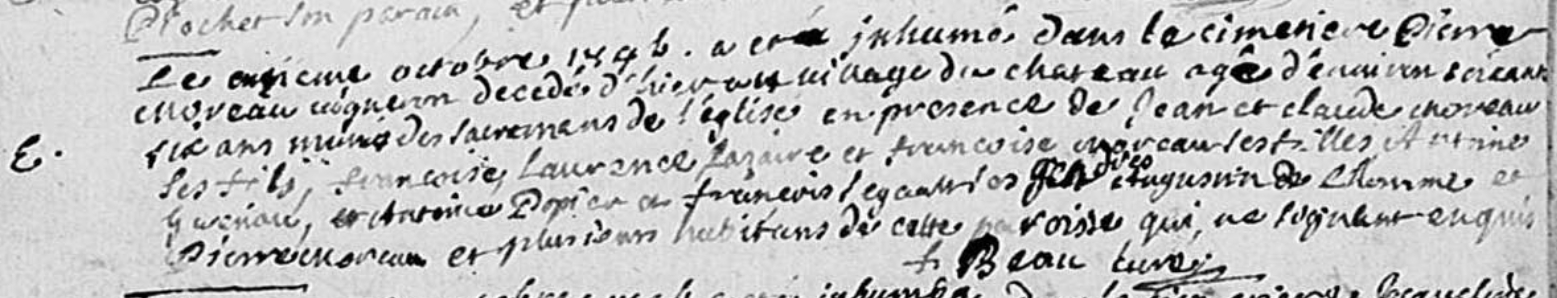 Rochet son parain, et
Le onzieme octobre 1746. a eté inhumé dans le cimetiere Pierre
Moreau vigneron decedé d'hier au village du chateau agé d'environ soixante
six ans muni des sacremens de l'église en presence de Jean et claude Moreau
E. ses fils, francoise, Laurence, Lazaire et francoise Moreau ses filles Antoine
et Antoine Popier et francois Legault ses gendres Augustin de Lhomme et
Pierre Moreau et plusieurs habitans de cette paroisse qui ne signent enquis
Beau curé
inhumé